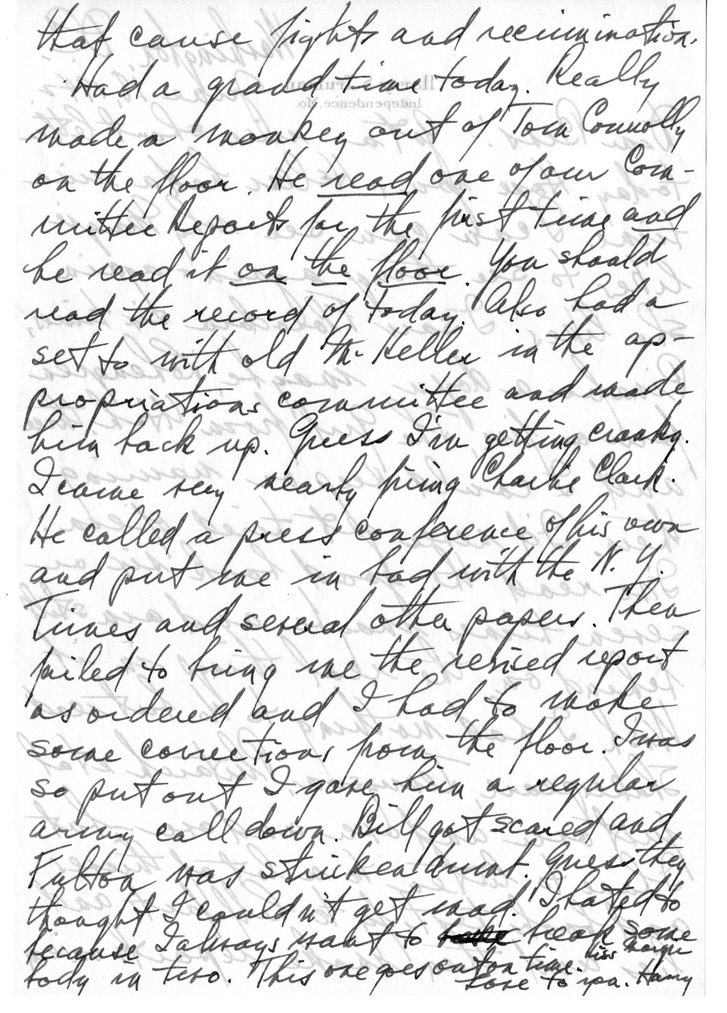 that cause fights and recrimination.
Had a grand time today. Really
made a monkey out of Tom Connolly
on the floor. He read one of our Com-
mittee Reports for the first time and
he read it on the floor. You should
read the record of today. Also had a
set to with old McKeller in the ap-
propriations committee and made
him back up. Guess I'm getting cranky.
I came very nearly firing Charlie Clark.
He called a press conference of his own
and put me in bad with the N.Y.
Times and several other papers. Then
failed to bring me the revised report
as ordered and I had to make
some corrections from the floor. I was
so put out I gave him a regular
army call down. Bill got scared and
Fulton was stricken dumb. Guess they
thought I couldn't get mad. I hated to
because I always want to break some
body in two. This one goes out on time.
Kiss Margie
Love to you. Harry